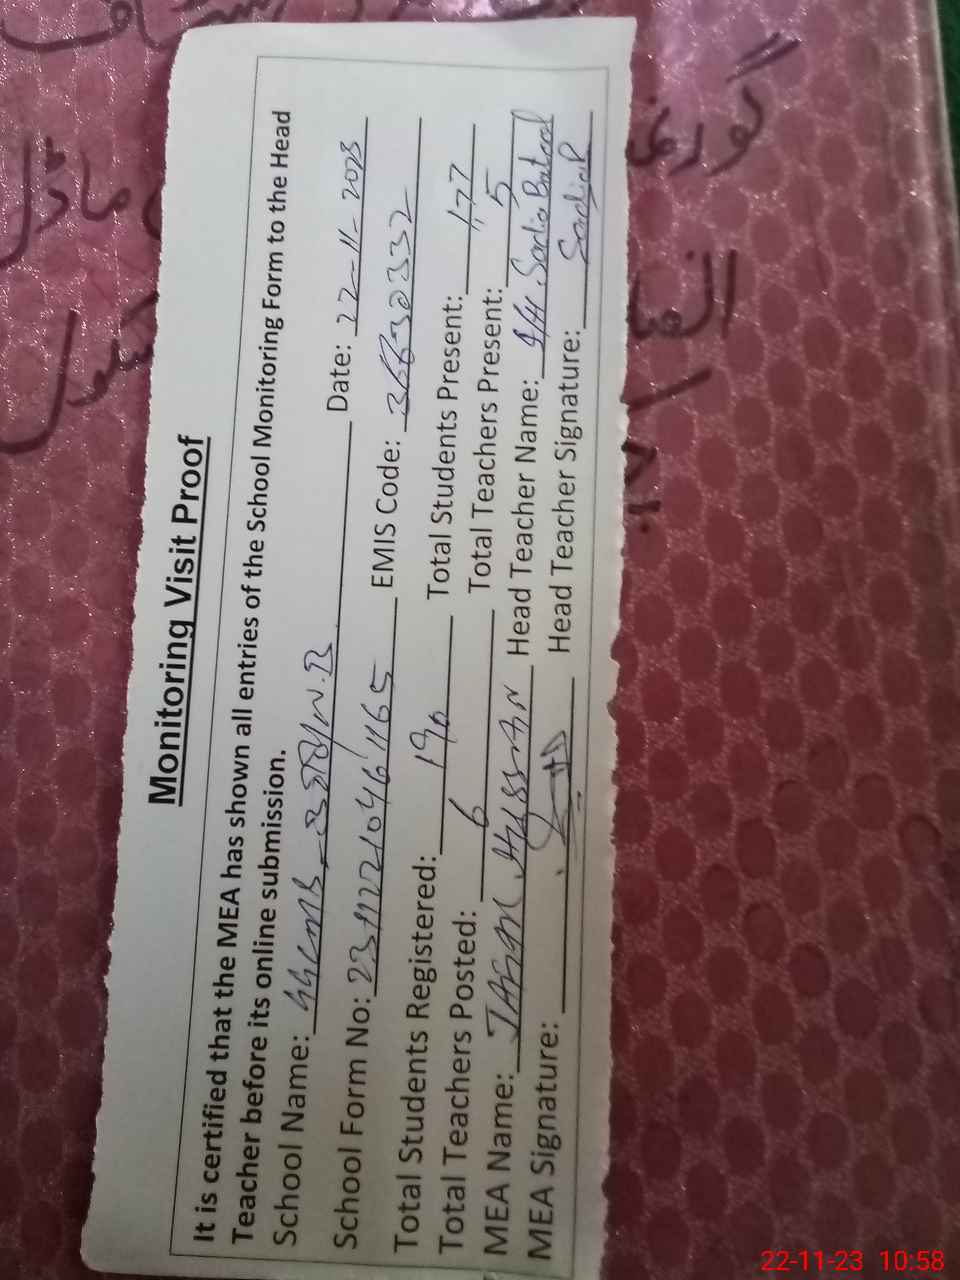 Monitoring Visit Proof
It is certified that the MEA has shown all entries of the School Monitoring Form to the Head
Teacher before its online submission.
School Name: GGCMS Date: 22-11-2023
School Form No: 23112210461165 EMIS Code: 36630332
Total Students Registered: 190 Total Students Present: 177
Total Teachers Posted: 6 Total Teachers Present: 5
MEA Name: Hussain Head Teacher Name: Sadia Batool
MEA Signature: Head Teacher Signature: Sadia B
ماڈل
سکول
22-11-23 10:58